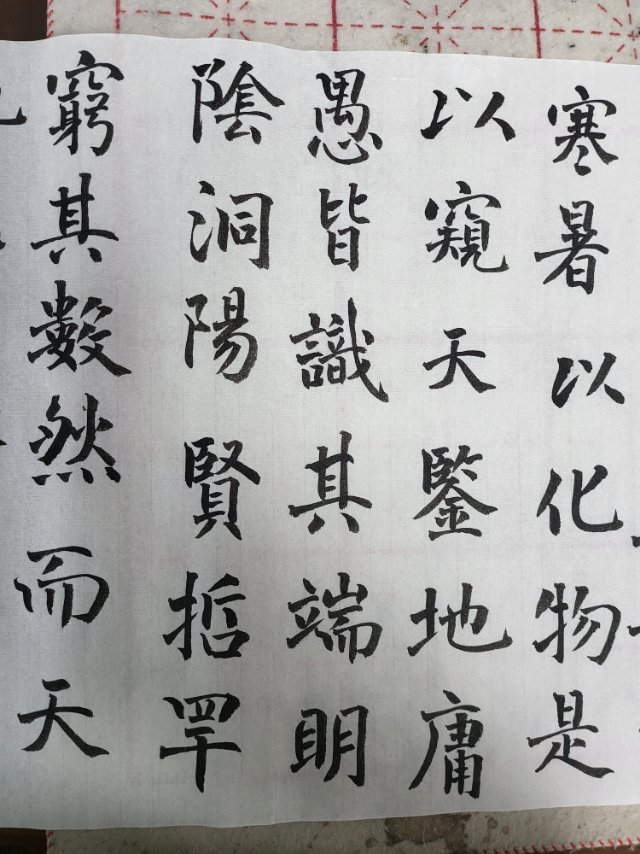 寒暑以化物是
以窺天鑒地庸
愚皆識其端明
陰洞陽賢哲罕
窮其數然而天